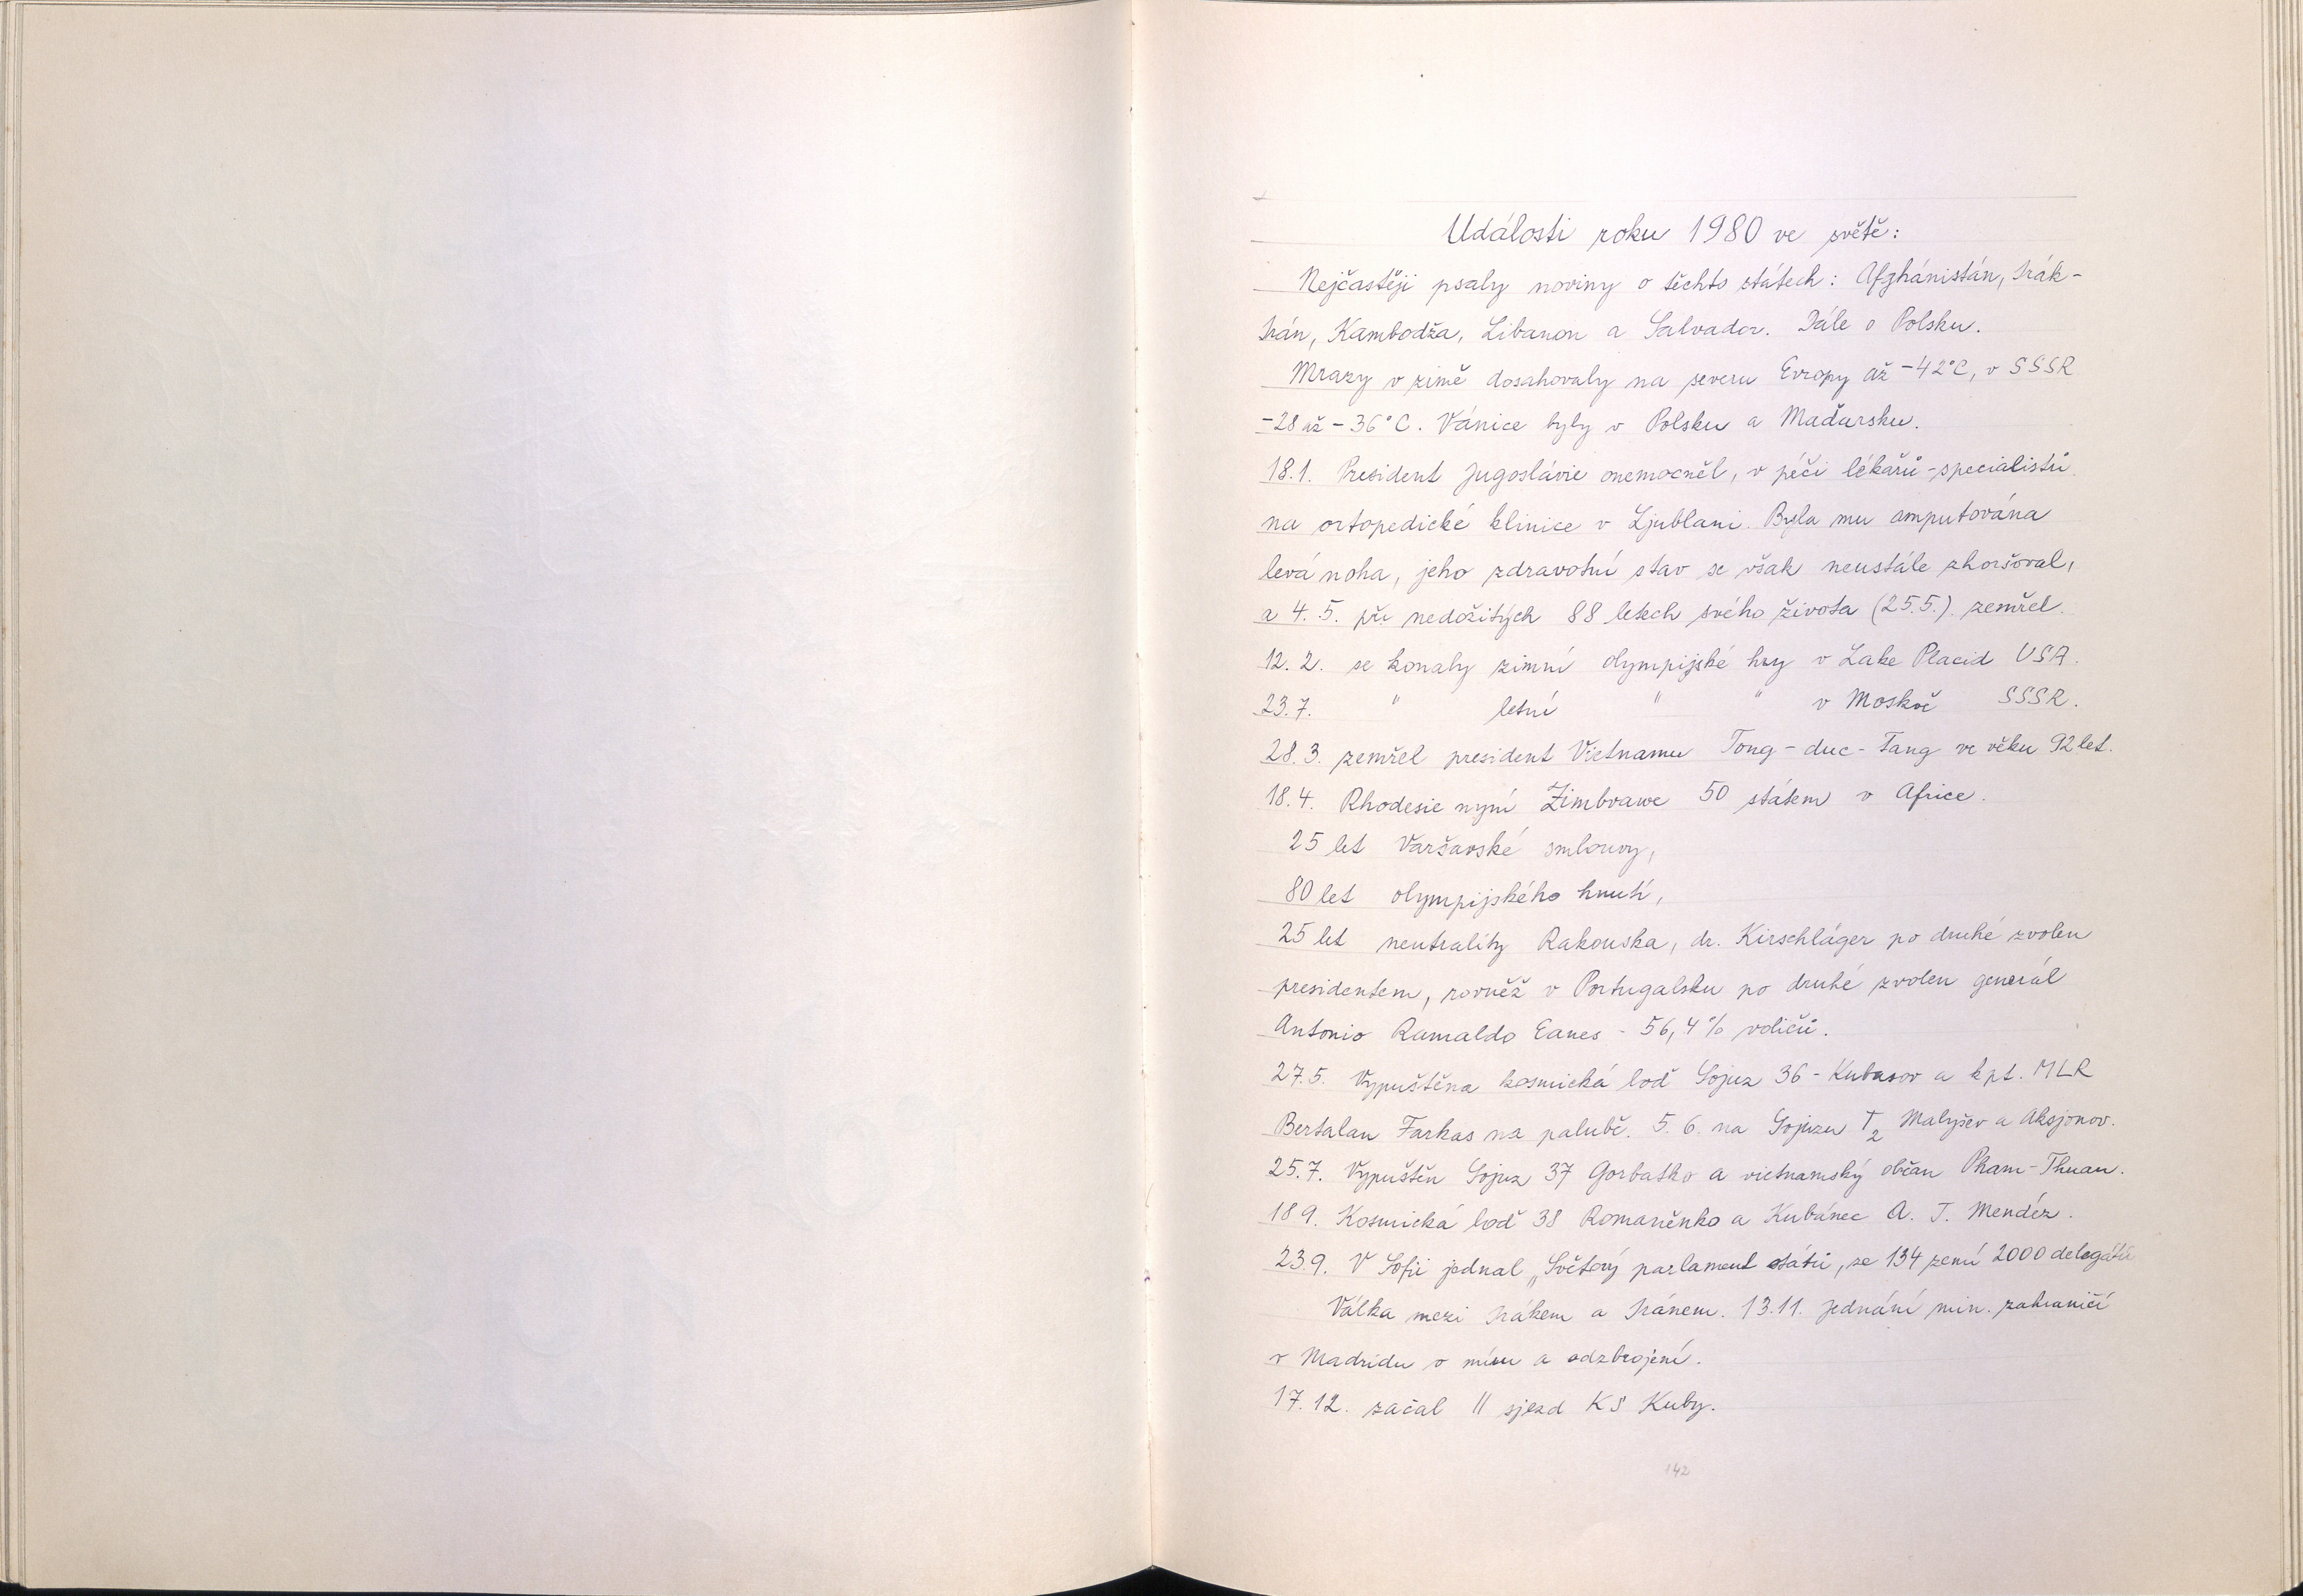 Události roku 1980 ve světě:
Nejčastěji psaly noviny o těchto státech: Afghánistán, Irák-
Irán, Kambodža, Libanon a Salvador. Dále o Polsku.
Mrazy v zimě dosahovaly na severu Evropy až -42°C, v SSSR
-28 až -36°C. Vánice byly v Polsku a Maďarsku.
18.1. President Jugoslávie onemocněl, v péči lékařů-specialistů
na ortopedické klinice v Ljublani. Byla mu amputována
levá noha, jeho zdravotní stav se však neustále zhoršoval,
a 4.5. při nedožitých 88 letech svého života (25.5.) zemřel.
12.2. se konaly zimní olympijské hry v Lake Placid USA.
23.7. " letní " " v Moskvě SSSR.
28.3. zemřel president Vietnamu Tong-duc-Tang ve věku 92 let.
18.4. Rhodesie nyní Zimbvawe 50 státem v Africe.
25 let Varšavské smlouvy,
80 let olympijského hnutí,
25 let neutrality Rakouska, dr. Kirschläger po druhé zvolen
presidentem, rovněž v Portugalsku po druhé zvolen generál
Antonio Ramaldo Eanes - 56,4% voličů.
27.5. Vypuštěna kosmická loď Sojuz 36 - Kubasov a kpt. MLR
Bertalan Farkas na palubě. 5.6. na Sojuzu T2 Malyšev a Aksjonov.
25.7. Vypuštěn Sojuz 37 Gorbatko a vietnamský občan Pham-Thuan.
18 9. Kosmická loď 38 Romaněnko a Kubánec A. T. Mendéz.
23.9. V Sofii jednal „Světový parlament států, ze 134 zemí 2000 delegátů
Válka mezi Irákem a Iránem. 13.11. jednání min. zahraničí
v Madridu o míru a odzbrojení.
17.12. začal II sjezd KS Kuby.
142